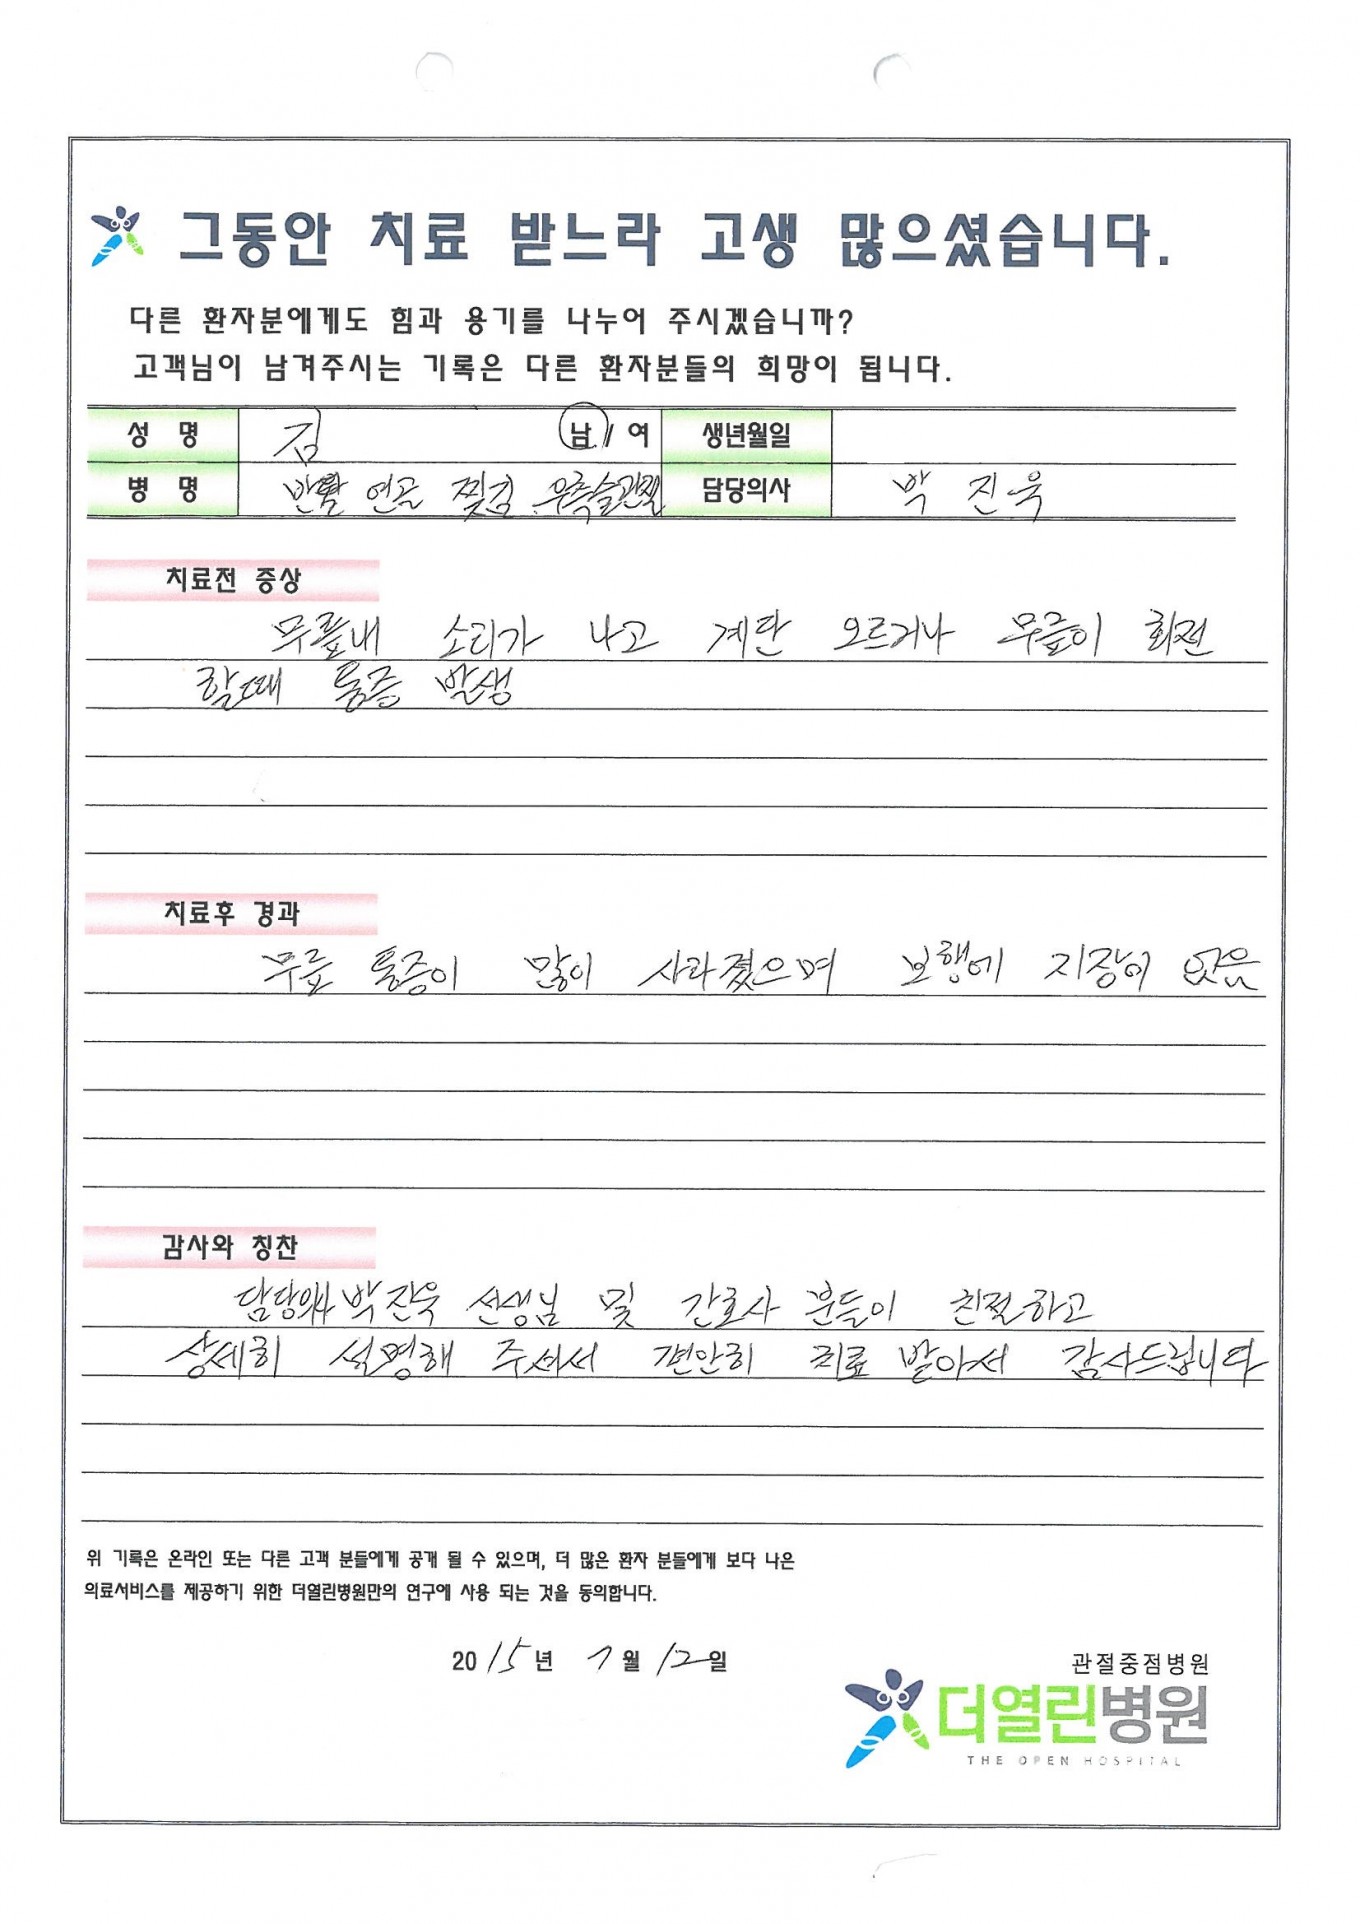 그동안 치료 받느라 고생 많으셨습니다.
다른 환자분에게도 힘과 용기를 나누어 주시겠습니까?
고객님이 남겨주시는 기록은 다른 환자분들의 희망이 됩니다.
성 명 김 남 / 여 생년월일
병 명 반월 연골 찢김 우측슬관절 담당의사 박 진욱
치료전 증상
무릎내 소리가 나고 계단 오르거나 무릎이 회전
할때 통증 발생
치료후 경과
무릎 통증이 많이 사라졌으며 보행에 지장이 없음
감사와 칭찬
담당의사 박진욱 선생님 및 간호사 분들이 친절하고
상세히 설명해 주셔서 편안히 치료 받아서 감사드립니다
위 기록은 온라인 또는 다른 고객 분들에게 공개 될 수 있으며, 더 많은 환자 분들에게 보다 나은
의료서비스를 제공하기 위한 더열린병원만의 연구에 사용 되는 것을 동의합니다.
2015년 7월 12일
관절중점병원
더열린병원
THE OPEN HOSPITAL